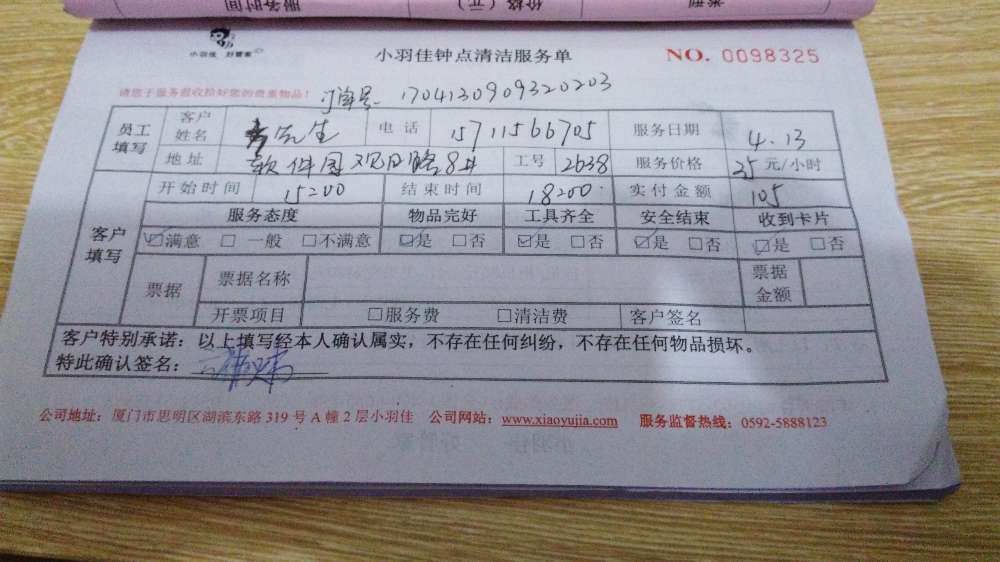 服务时间 价格(元) 类别
小羽佳 好管家
小羽佳钟点清洁服务单 NO. 0098325
请您于服务前收拾好您的贵重物品! 订单号 1704130909320203
员工填写 客户姓名 先生 电话 15711566705 服务日期 4.13
地址 软件园观日路8# 工号 2638 服务价格 35 元/小时
客户填写 开始时间 15:00 结束时间 18:00 实付金额 105
服务态度 物品完好 工具齐全 安全结束 收到卡片
☑满意 □一般 □不满意 ☑是 □否 ☑是 □否 ☑是 □否 ☑是 □否
票据 票据名称 票据金额
开票项目 □服务费 □清洁费 客户签名
客户特别承诺:以上填写经本人确认属实,不存在任何纠纷,不存在任何物品损坏。
特此确认签名:
公司地址:厦门市思明区湖滨东路319号A幢2层小羽佳 公司网站:www.xiaoyujia.com 服务监督热线:0592-5888123